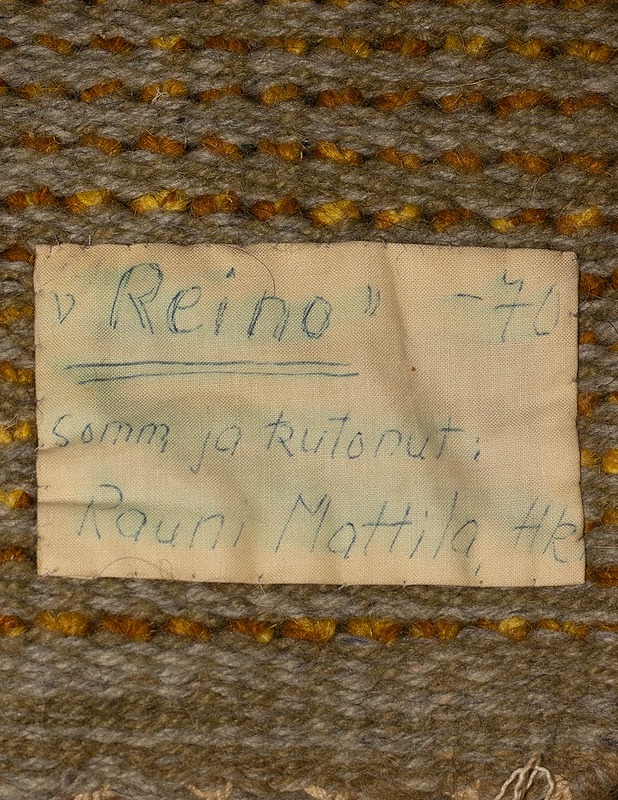 "Reino" -70
somm ja kutonut:
Rauni Mattila, Hk